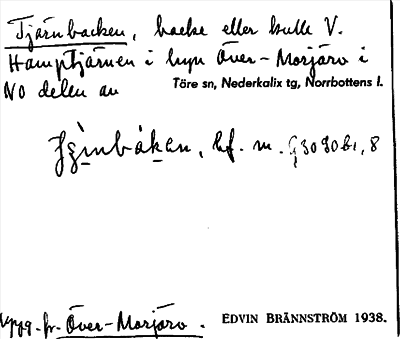 Tjärnbacken, backe eller kulle V.
Hamptjärnen i byn Över-Morjärv i
NO delen av Töre sn, Nederkalix tg, Norrbottens l.
bf. m.
Uppg. fr. Över-Morjärv. EDVIN BRÄNNSTRÖM 1938.